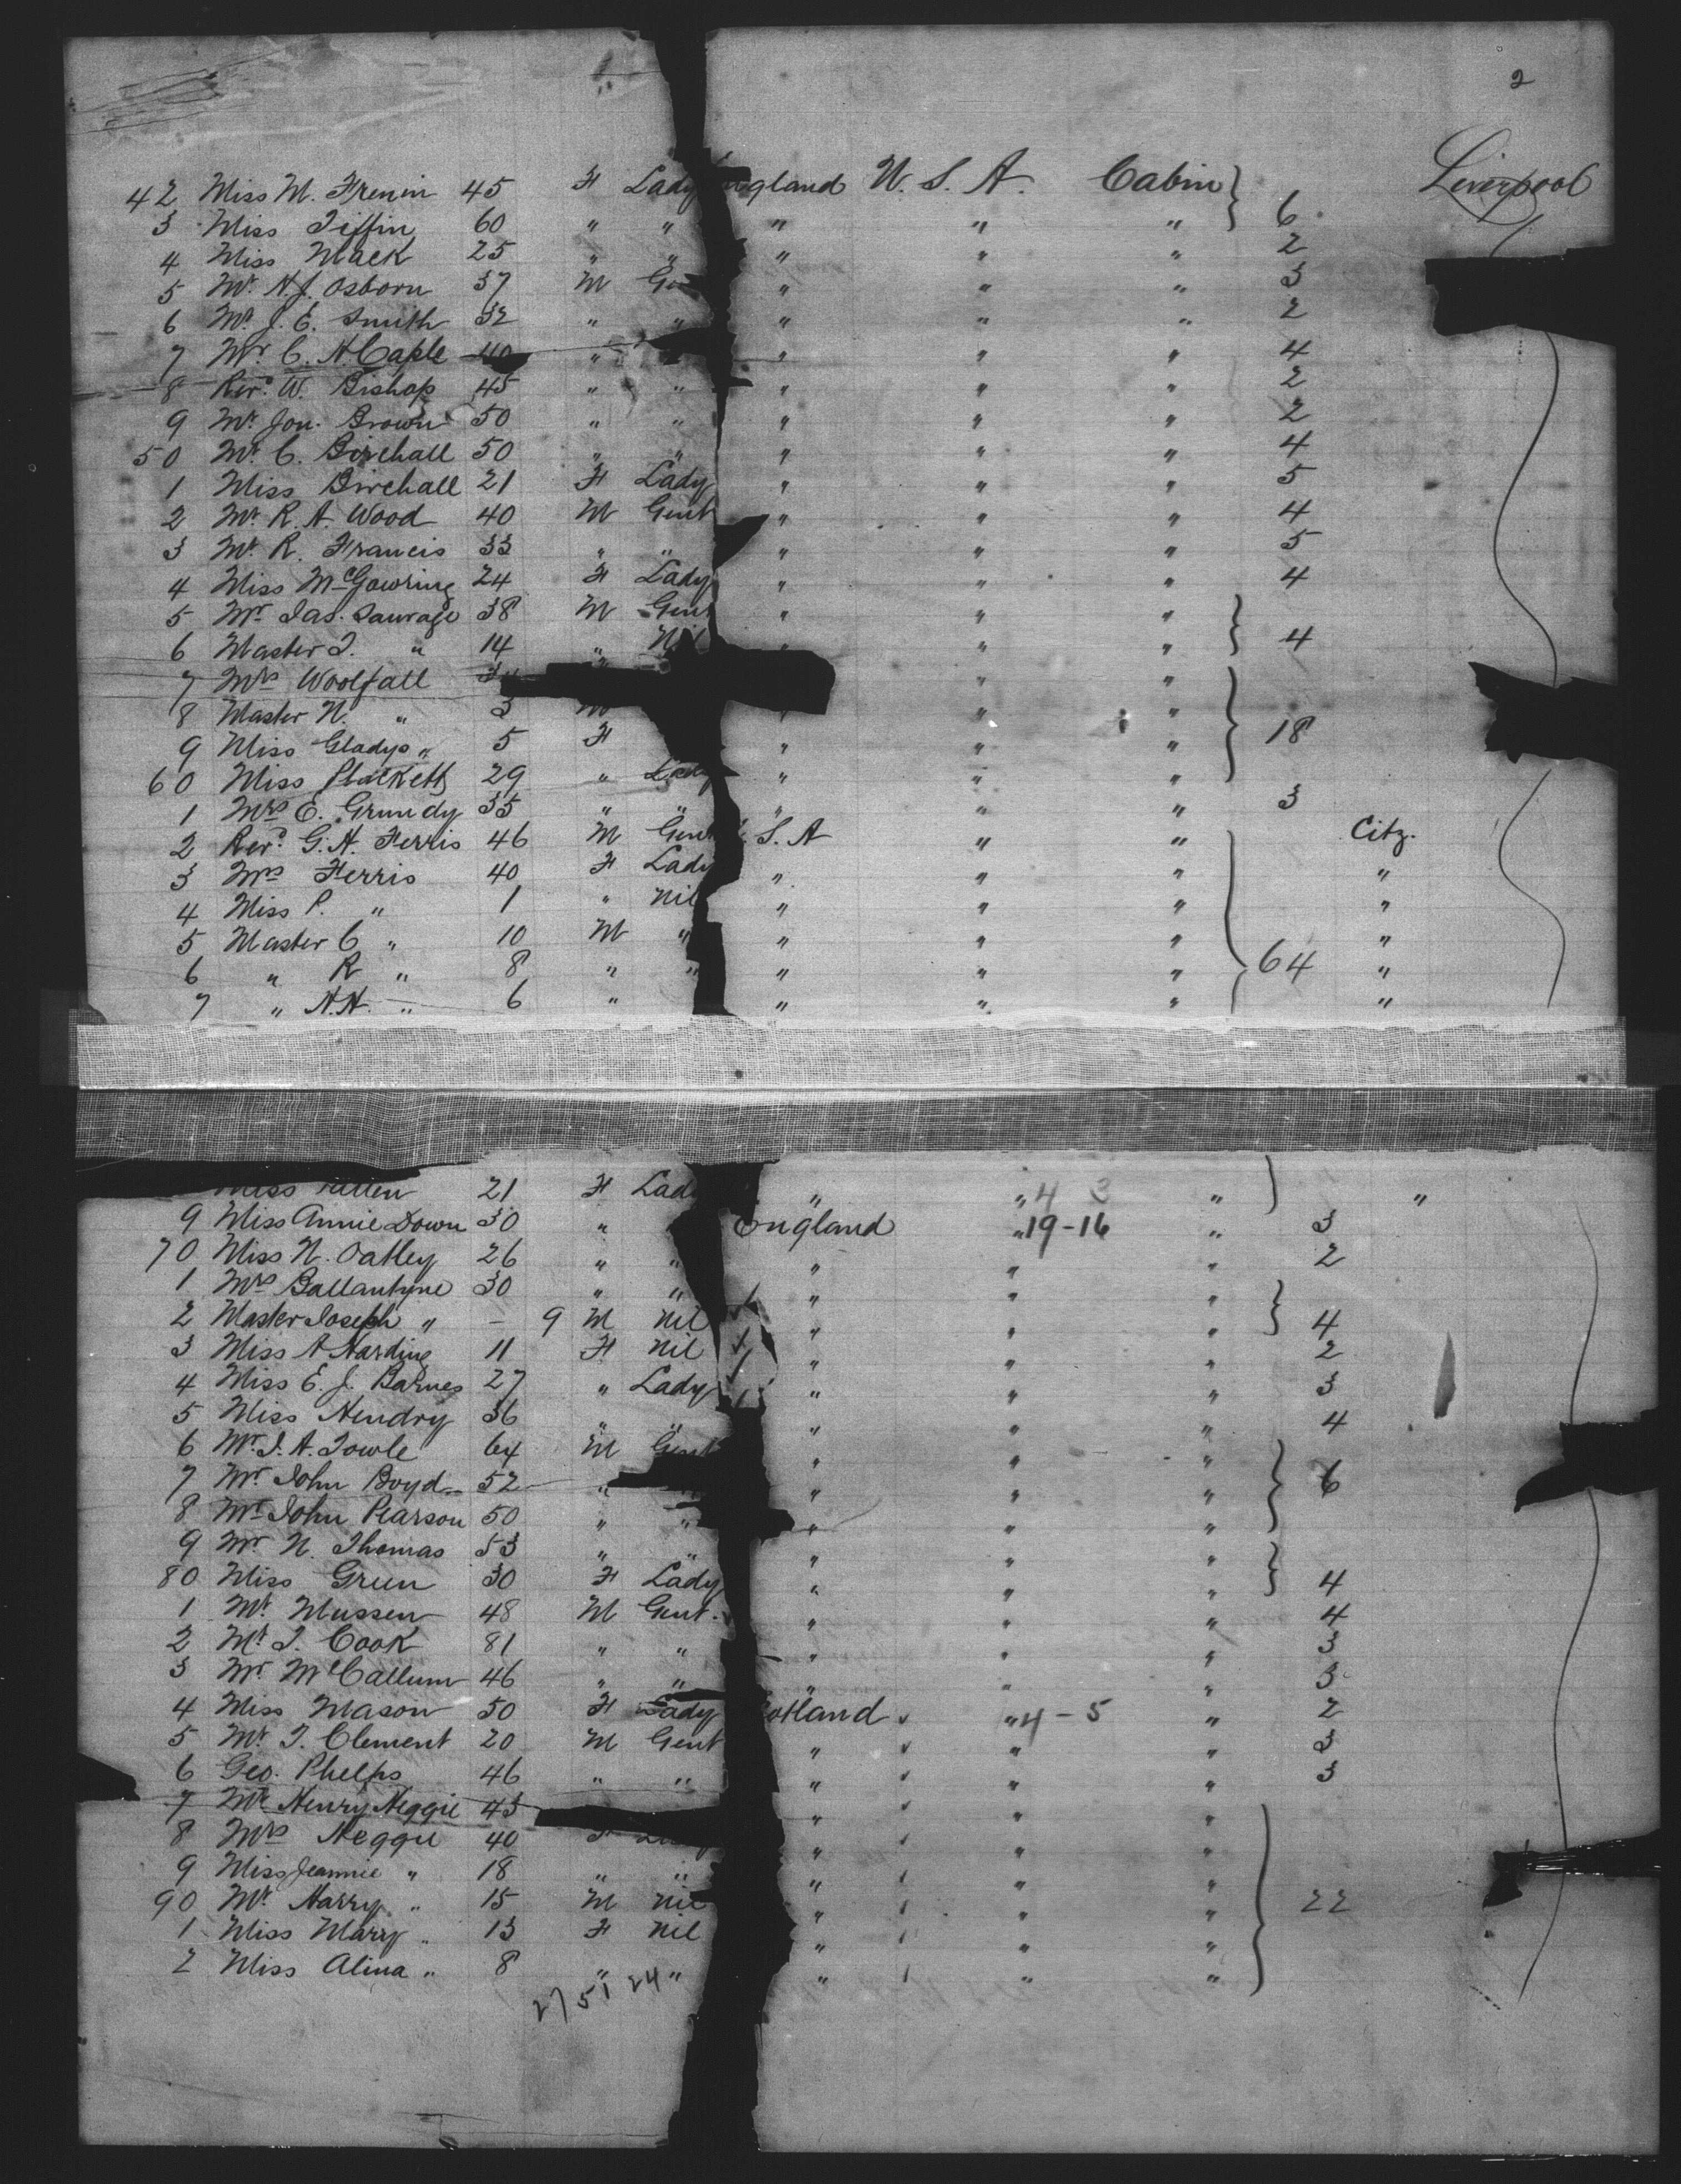 2
Liverpool
42 Miss M. Frenin 45 F Lady England U. S. A. Cabin 6
3 Miss Tiffin 60 " " " " "
4 Miss Mack 25 " " " " " 2
5 Mr. H. J. Osborn 37 M Ge " " " 3
6 Mr. J. E. Smith 32 " " " " " 2
7 Mr. C. H. Caple 40 " " " " 4
8 Revd. W. Bishop 45 " " " " " 2
9 Mr. Jon. Brown 50 " " " " " 2
50 Mr. C. Birchall 50 " " " " " 4
1 Miss Birchall 21 F Lady " " " 5
2 Mr. R. A. Wood 40 M Gent " " " 4
3 Mr. R. Francis 33 " " " " " 5
4 Miss McGowring 24 F Lady " " " 4
5 Mr. Jas. 38 M Gent " " "
6 Master J. " 14 " Nil " " " 4
7 Mrs Woolfall " "
8 Master N. " 3 M " " "
9 Miss Gladys " 5 F " " " 18
60 Miss Plackett 29 " Lady " " "
1 Mrs E. Grundy 35 " " " " " 3
2 Revd. G. H. Ferris 46 M Gent S. A " " Citz.
3 Mrs Ferris 40 F Lady " " " "
4 Miss P. " 1 " nil " " " "
5 Master C " 10 M " " " " "
6 " R " 8 " " " " " 64 "
7 " A. H. " 6 " " " " "
Miss 21 F Lad " " 4 3 " "
9 Miss Annie Down 30 " England " 19-16 " 3
70 Miss N. Oatley 26 " " " " " 2
1 Mrs Ballantyne 30 " " " " "
2 Master Joseph " - 9 M nil " " " 4
3 Miss A Harding 11 F nil " " " 2
4 Miss E. J. Barnes 27 " Lady " " " 3
5 Miss Hendry 36 " " " " " 4
6 Mr. J. A. Towle 64 M Gent " " "
7 Mr. John Boyd 52 " " " " 6
8 Mr. John Pearson 50 " " " " "
9 Mr. N. Thomas 53 " " " " "
80 Miss Green 30 F Lady " " " 4
1 Mr. Mussen 48 M Gent. " " " 4
2 Mr. J. Cook 81 " " " " " 3
3 Mr. McCallum 46 " " " " " 3
4 Miss Mason 50 F Lady otland " 4-5 " 2
5 Mr. T. Clement 20 M Gent " " " 3
6 Geo. Phelps 46 " " " " " 3
7 Mr. Henry Heggie 43 " " "
8 Mrs Heggie 40 F " " "
9 Miss Jeannie " 18 " " " " "
90 Mr. Harry " 15 M nil " " " 22
1 Miss Mary " 13 F nil " " "
2 Miss Alina " 8 " " " " "
27 51 24